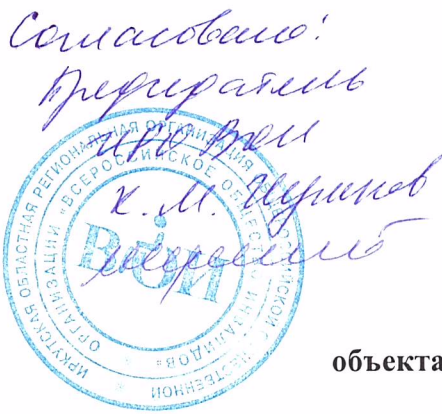 Согласовано:
Председатель
ИРО ВОИ
К. М.
ИРКУТСКАЯ ОБЛАСТНАЯ РЕГИОНАЛЬНАЯ ОРГАНИЗАЦИЯ
ОРГАНИЗАЦИИ «ВСЕРОССИЙСКОЕ ОБЩЕСТВО ИНВАЛИДОВ»
ВОИ
объекта